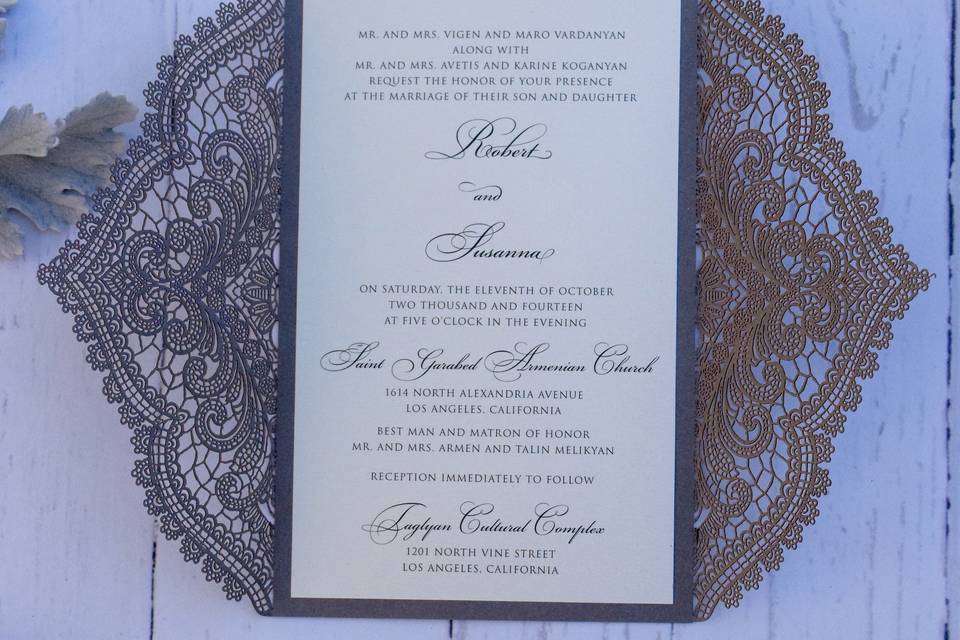 MR. AND MRS. VIGEN AND MARO VARDANYAN
ALONG WITH
MR. AND MRS. AVETIS AND KARINE KOGANYAN
REQUEST THE HONOR OF YOUR PRESENCE
AT THE MARRIAGE OF THEIR SON AND DAUGHTER
Robert
and
Susanna
ON SATURDAY, THE ELEVENTH OF OCTOBER
TWO THOUSAND AND FOURTEEN
AT FIVE O'CLOCK IN THE EVENING
Saint Garabed Armenian Church
1614 NORTH ALEXANDRIA AVENUE
LOS ANGELES, CALIFORNIA
BEST MAN AND MATRON OF HONOR
MR. AND MRS. ARMEN AND TALIN MELIKYAN
RECEPTION IMMEDIATELY TO FOLLOW
Taglyan Cultural Complex
1201 NORTH VINE STREET
LOS ANGELES, CALIFORNIA